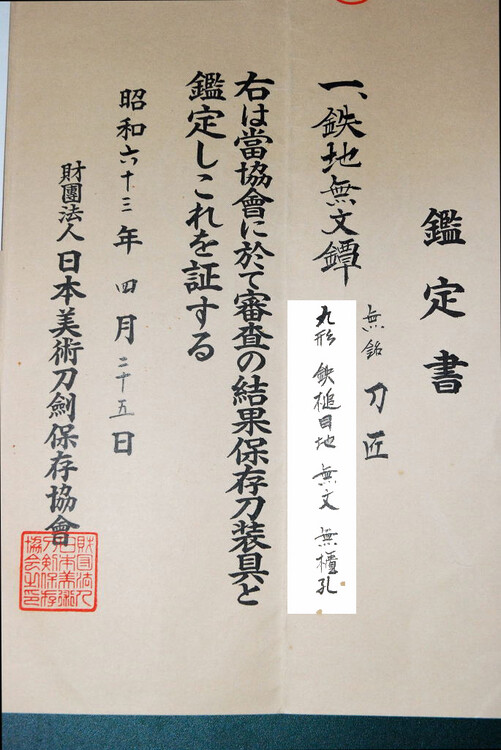 鑑定書
一、鉄地無文鐔
無銘 刀匠
丸形 鉄槌目地 無文 無櫃孔
右は當協會に於て審査の結果保存刀装具と
鑑定しこれを証する
昭和六十三年四月二十五日
財團法人日本美術刀劍保存協會
財団法人
日本美術
刀剣保存
協会之印